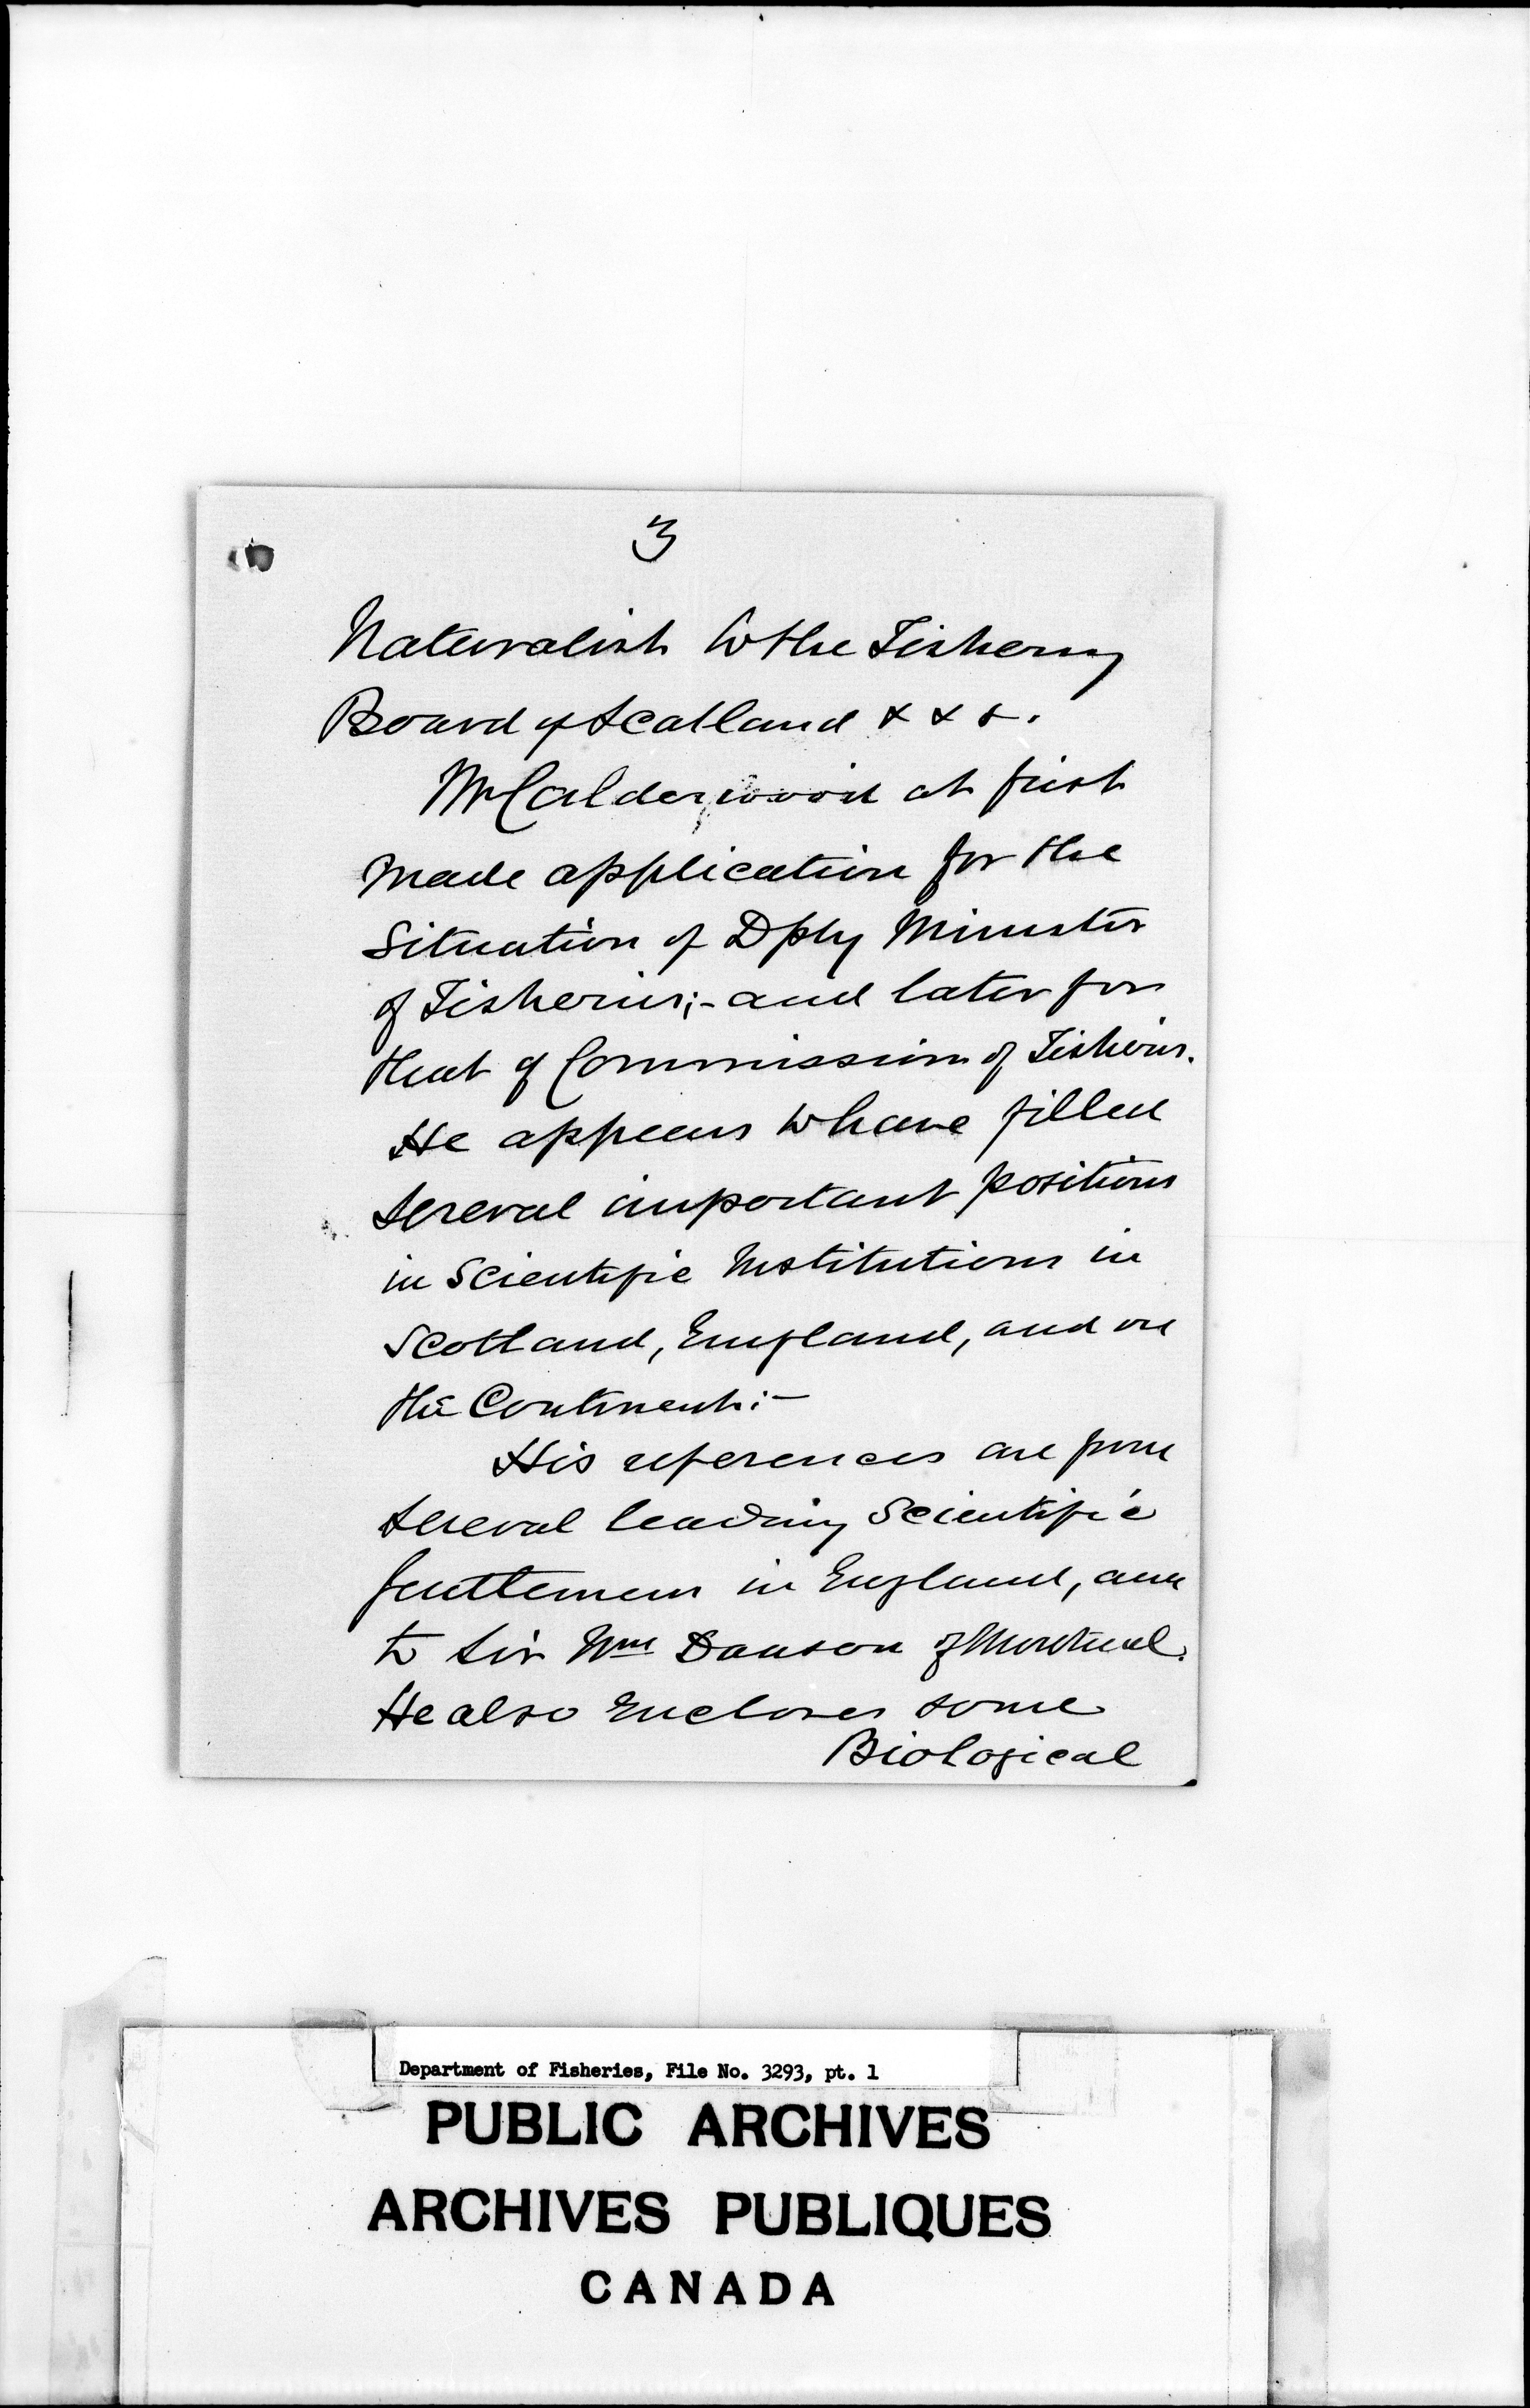 3
Naturalist to the Fishery
Board of Scotland x x x.
Mr Calderwood at first
made application for the
Situation of Dpty Minister
of Fisheries;- and later for
that of Commission of Fisheries.
He appears to have filled
Several important positions
in Scientific Institutions in
Scotland, England, and on
the Continent:-
His references are from
Several leading Scientific
Gentlemen in England, and
to Sir Wm Dawson of Montreal.
He also Encloses some
Biological
Department of Fisheries, File No. 3293, pt. 1
PUBLIC ARCHIVES
ARCHIVES PUBLIQUES
CANADA